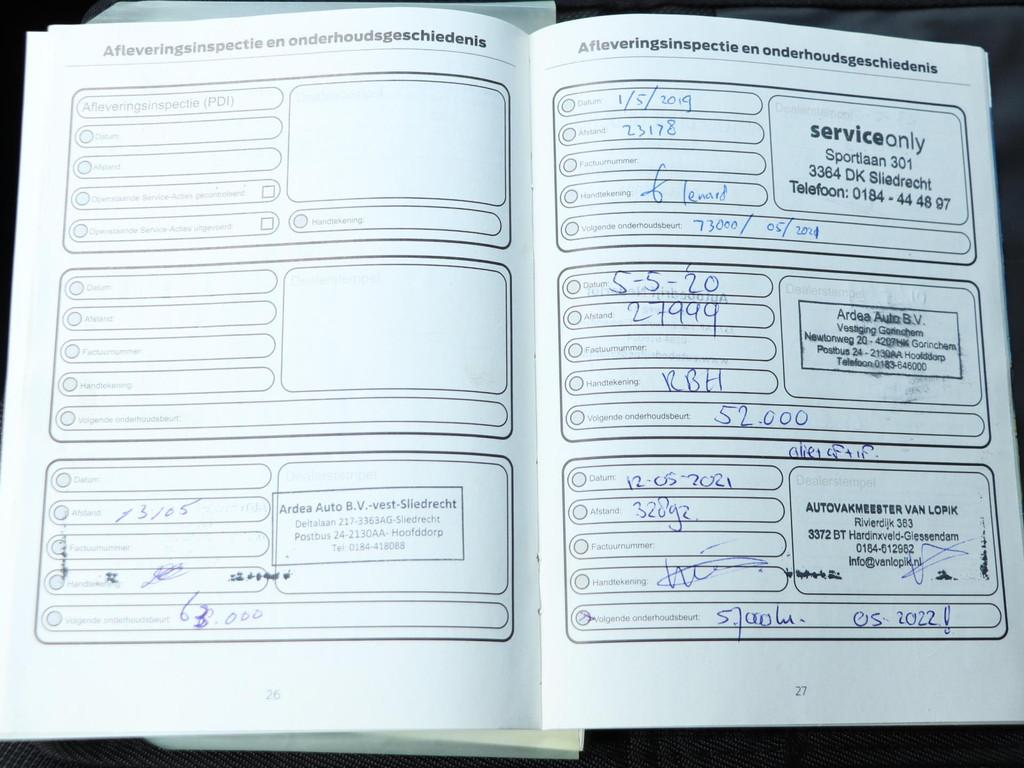 Afleveringsinspectie en onderhoudsgeschiedenis
Afleveringsinspectie (PDI)
Datum:
Afstand:
Openstaande Service-Acties gecontroleerd:
Openstaande Service-Acties uitgevoerd:
Dealerstempel
Handtekening:
Datum:
Afstand:
Factuurnummer:
Handtekening:
Volgende onderhoudsbeurt:
Dealerstempel
Datum:
Afstand: 13105
Factuurnummer:
Handtekening:
Volgende onderhoudsbeurt: 63.000
Dealerstempel
Ardea Auto B.V.-vest-Sliedrecht
Deltalaan 217-3363AG-Sliedrecht
Postbus 24-2130AA- Hoofddorp
Tel: 0184-418088
26
Afleveringsinspectie en onderhoudsgeschiedenis
Datum: 1/5/2019
Afstand: 23178
Factuurnummer:
Handtekening: lenard
Volgende onderhoudsbeurt: 73000/ 05/2021
Dealerstempel
serviceonly
Sportlaan 301
3364 DK Sliedrecht
Telefoon: 0184 - 44 48 97
Datum: 5-5-'20
Afstand: 27999
Factuurnummer:
Handtekening: RBH
Volgende onderhoudsbeurt: 52.000
Dealerstempel
Ardea Auto B.V.
Vestiging Gorinchem
Newtonweg 20 - 4207HK Gorinchem
Postbus 24 - 2130AA Hoofddorp
Telefoon 0183-646000
Datum: 12-05-2021
Afstand: 32892
Factuurnummer:
Handtekening:
Volgende onderhoudsbeurt: 57000km. 05-2022!
Dealerstempel
AUTOVAKMEESTER VAN LOPIK
Rivierdijk 363
3372 BT Hardinxveld-Giessendam
0184-612982
Info@vanlopik.nl
27